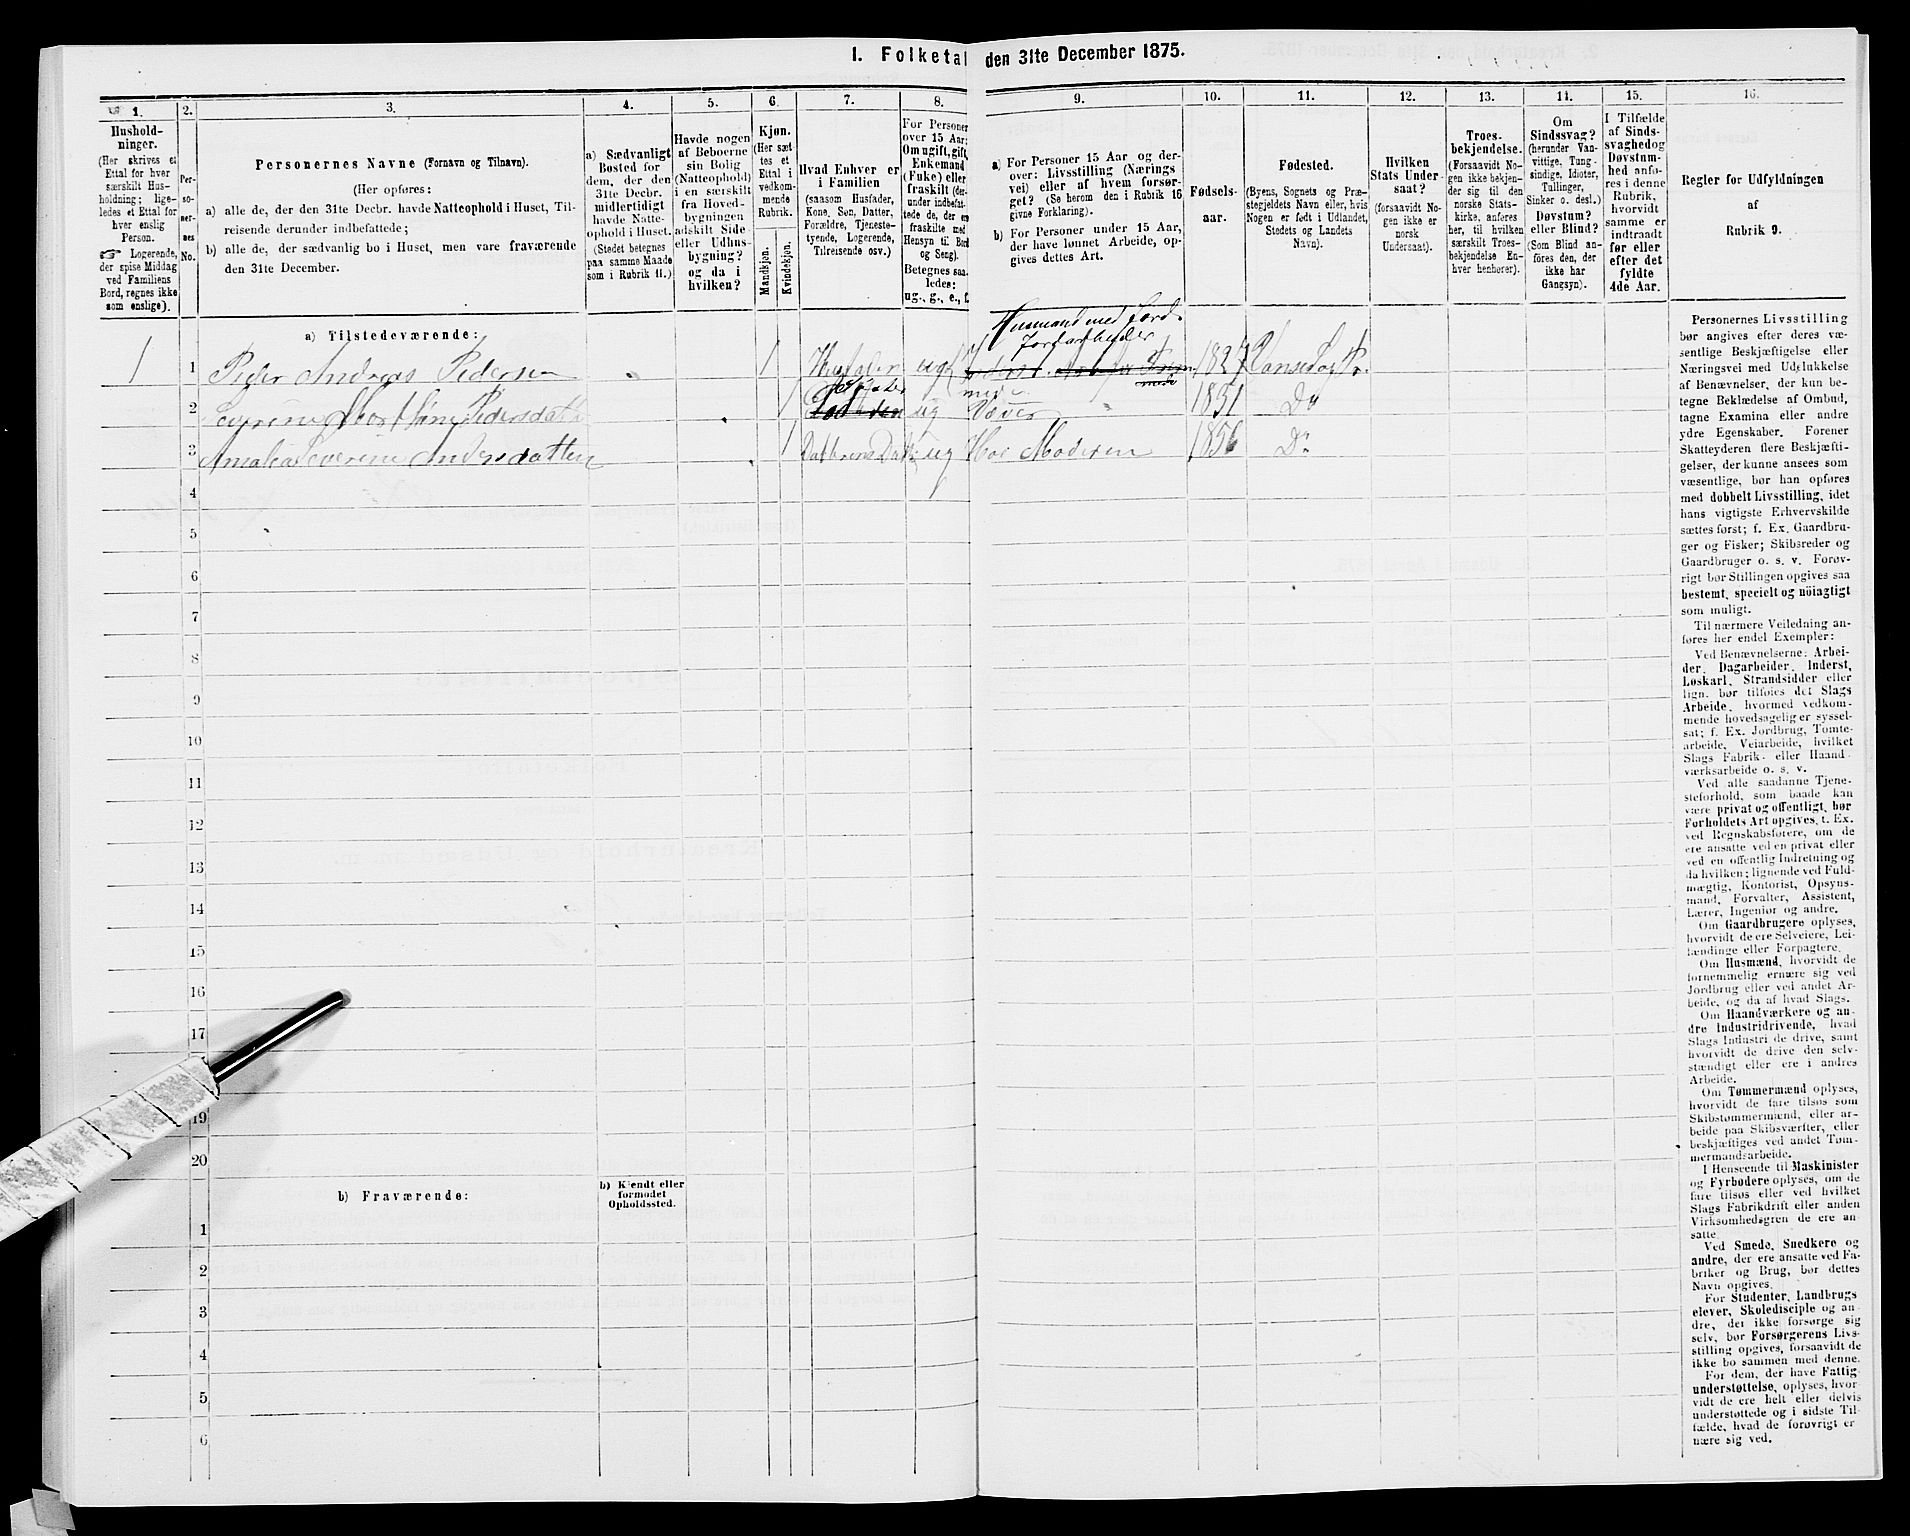 I. Folketal den 31te December 1875.
1. 2. 3. 4. 5. 6. 7. 8. 9. 10. 11. 12. 13. 14. 15. 16.
Hushold-
ninger.
(Her skrives et
Ettal for hver
særskilt Hus-
holdning; lige-
ledes et Ettal for
hver enslig
Person.
☞ Logerende,
der spise Middag
ved Familiens
Bord, regnes ikke
som enslige).
Per-
so-
ner-
nes
No.
Personernes Navne (Fornavn og Tilnavn).
(Her opføres:
a) alle de, der den 31te Decbr. havde Natteophold i Huset, Til-
reisende derunder indbefattede;
b) alle de, der sædvanlig bo i Huset, men vare fraværende
den 31te December.
a) Sædvanligt
Bosted for
dem, der den
31te Decbr.
midlertidigt
havde Natte-
ophold i Huset.
(Stedet betegnes
paa samme Maade
som i Rubrik 11.)
Havde nogen
af Beboerne
sin Bolig
(Natteophold)
i en særskilt
fra Hoved-
bygningen
adskilt Side-
eller Udhus-
bygning?
og da i
hvilken?
Kjøn.
(Her sæt-
tes et
Ettal i
vedkom-
mende
Rubrik.
Mandkjøn.
Kvindekjøn.
Hvad Enhver er
i Familien
(saasom Husfader,
Kone, Søn, Datter,
Forældre, Tjeneste-
tyende, Logerende,
Tilreisende osv.)
For Personer
over 15 Aar:
Om ugift, gift,
Enkemand
(Fuke) eller
fraskilt (der-
under indbefat-
tede de, der er
fraskilte med
Hensyn til Bord
og Seng).
Betegnes saa-
ledes:
ug., g., e., f.
a) For Personer 15 Aar og der-
over: Livsstilling (Nærings
vei) eller af hvem forsør-
get? (Se herom den i Rubrik 16
givne Forklaring).
b) For Personer under 15 Aar,
der have lønnet Arbeide, op-
gives dettes Art.
Fødsels-
aar.
Fødested.
(Byens, Sognets og Præ-
stegjeldets Navn eller, hvis
Nogen er født i Udlandet,
Stedets og Landets
Navn).
Hvilken
Stats Under-
saat?
(forsaavidt No-
gen ikke er
norsk
Undersaat).
Troes-
bekjendelse.
(Forsaavidt No-
gen ikke bekjen-
der sig til den
norske Stats-
kirke, anføres
her, til hvilken
særskilt Troes-
bekjendelse En-
hver henhører).
Om
Sindssvag?
(herunder Van-
vittige, Tung-
sindige, Idioter,
Tullinger,
Sinker o. desl.)
Døvstum?
eller Blind?
(Som Blind an-
føres den, der
ikke har
Gangsyn).
I Tilfælde
af Sinds-
svaghed og
Døvstum-
hed anfø-
res i denne
Rubrik,
hvorvidt
samme er
indtraadt
før eller
efter det
fyldte
4de Aar.
Regler for Udfyldningen
af
Rubrik 9.
a) Tilstedeværende:
Husmand med Jord.
Jordarbeider
1 1 Peder Andreas Pedersen 1 Husfader ug 1827
2 Severine Pedersdatter 1 ug Væver 1851 Do
3 Amalia Severine Andersdatter 1 Datterens Datter ug Hos Moderen 1856 Do
4
5
6
7
8
9
10
11
12
13
14
15
16
17
19
20
b) Fraværende:
b) Kjendt eller
formodet
Opholdssted.
1
2
3
4
5
6
Personernes Livsstilling
bør angives efter deres væ-
sentlige Beskjæftigelse eller
Næringsvei med Udelukkelse
af Benævnelser, der kun be-
tegne Beklædelse af Ombud,
tagne Examina eller andre
ydre Egenskaber. Forener
Skatteyderen flere Beskjæfti-
gelser, der kunne ansees som
væsentlige, bør han opføres
med dobbelt Livsstilling, idet
hans vigtigste Erhvervskilde
sættes først; f. Ex. Gaardbru-
ger og Fisker; Skibsreder og
Gaardbruger o. s. v. Forøv-
rigt bør Stillingen opgives saa
bestemt, specielt og nøiagtigt
som muligt.
Til nærmere Veiledning an-
føres her endel Exempler:
Ved Benævnelserne: Arbei-
der, Dagarbeider, Inderst,
Løskarl, Strandsidder eller
lign. bør tilføies det Slags
Arbeide, hvormed vedkom-
mende hovedsagelig er syssel-
sat; f. Ex. Jordbrug, Tomte-
arbeide, Veiarbeide, hvilket
Slags Fabrik- eller Haand-
værksarbeide o. s. v.
Ved alle saadanne Tjene-
steforhold, som baade kan
være privat og offentligt, bør
Forholdets Art opgives, t. Ex.
ved Regnskabsførere, om de
ere ansatte ved en privat eller
ved en offentlig Indretning og
da hvilken; lignende ved Fuld-
mægtig, Kontorist, Opsyns-
mand, Forvalter, Assistent,
Lærer, Ingeniør og andre.
Om Gaardbrugere oplyses,
hvorvidt de ere Selveiere, Lei-
lændinge eller Forpagtere.
Om Husmænd, hvorvidt de
fornemmelig ernære sig ved
Jordbrug eller ved andet Ar-
beide, og da af hvad Slags.
Om Haandværkere og an-
dre Industridrivende, hvad
Slags Industri de drive, samt
hvorvidt de drive den selv-
stændigt eller ere i andres
Arbeide.
Om Tømmermænd oplyses,
hvorvidt de fare tilsøs som
Skibstømmermænd, eller ar-
beide paa Skibsværfter, eller
beskjæftiges ved andet Tøm-
mermandsarbeide.
I Henseende til Maskinister
og Fyrbødere oplyses, om de
fare tilsøs eller ved hvilket
Slags Fabrikdrift eller anden
Virksomhedsgren de ere an-
satte.
Ved Smede, Snedkere og
andre, der ere ansatte ved Fa-
briker og Brug, bør dettes
Navn opgives.
For Studenter, Landbrugs
elever, Skoledisciple og an-
dre, der ikke forsørge sig
selv, bør Forsørgerens Livs-
stilling opgives, forsaavidt de
ikke bo sammen med denne.
For dem, der have Fattig-
understøttelse, oplyses, hvor-
vidt de ere helt eller delvis
understøttede og i sidste Til-
fælde, hvad de forøvrigt er-
nære sig ved.